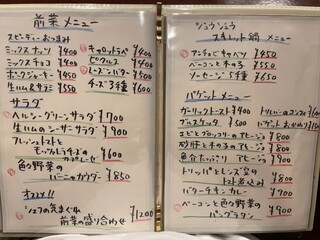 前菜メニュー
スピーディーおつまみ
ミックスナッツ ¥400
ミックスチョコ ¥400
ポークジャーキー ¥450
生ハム&サラミ ¥550
キャロットラペ ¥400
ピクルス ¥400
レーズンバター ¥500
チーズ3種 ¥600
サラダ
ヘルシーグリーンサラダ ¥700
生ハムのシーザーサラダ ¥900
フレッシュトマトと
モッツァレラチーズの
カプレーゼ ¥600
色々野菜の
バーニャカウダー ¥850
オススメ!!
シェフの気まぐれ
前菜の盛り合わせ ¥1200
ジュウジュウ
スキレット鍋メニュー
アンチョビキャベツ ¥450
ベーコンときのこ ¥550
ソーセージ5種 ¥650
バゲットメニュー
ガーリックトースト ¥400
ブルスケッタ ¥500
バゲットおかわり
エビとブロッコリーのアヒージョ ¥800
砂肝とキノコのアヒージョ ¥800
魚介たっぷりアヒージョ ¥900
トリッパとレンズ豆の
トマト煮込み ¥800
バターチキンカレー ¥900
ベーコンと色々野菜の
パングラタン ¥900